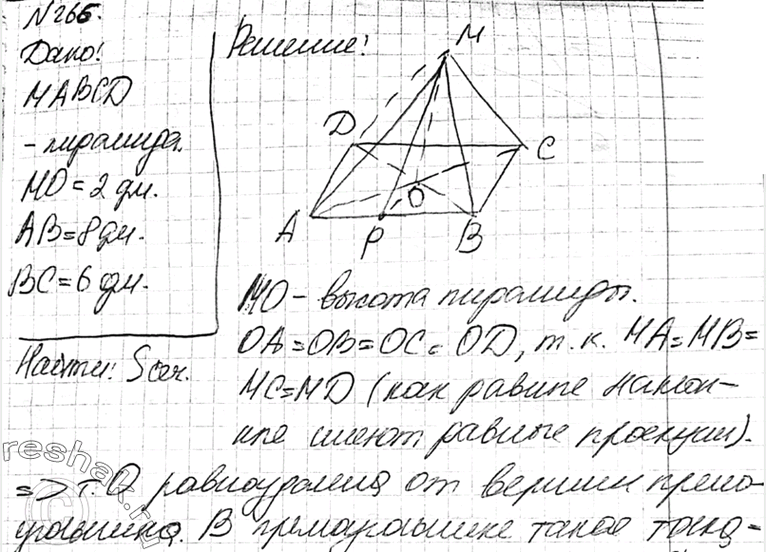 №266.
Дано:
MABCD
- пирамида.
MO = 2 дм.
AB = 8 дм.
BC = 6 дм.
Найти: Sсеч.
Решение:
M
D
C
O
A
P
B
MO - высота пирамиды.
OA = OB = OC = OD, т.к. MA = MB =
MC = MD (как равные наклон-
ные имеют равные проекции).
=> т. O равноудалена от вершин прямо-
угольника. В прямоугольнике такая точка -
reshak.ru